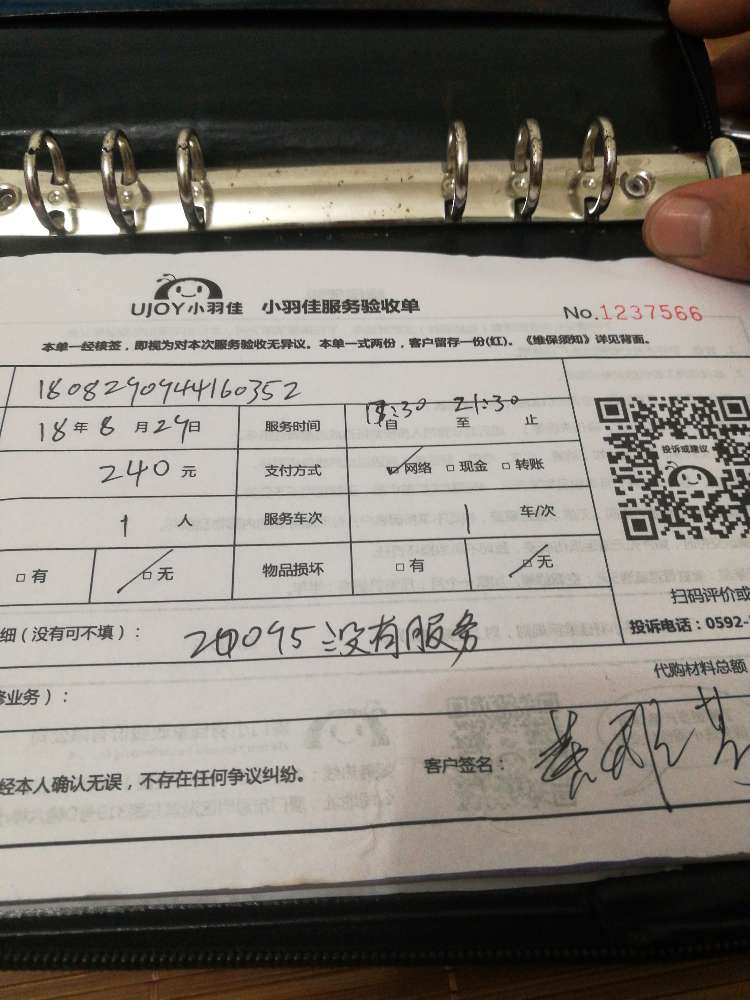 UJOY小羽佳 小羽佳服务验收单 No.1237566
本单一经核签，即视为对本次服务验收无异议。本单一式两份，客户留存一份(红)。《维保须知》详见背面。
1808290944160352
18年8月29日 服务时间 18:30自 至 21:30止
240元 支付方式 网络 现金 转账
1人 服务车次 1车/次
有 无 物品损坏 有 无
投诉或建议
扫码评价或
投诉电话：0592-
细（没有可不填）： 没有服务
代购材料总额
修业务）：
经本人确认无误，不存在任何争议纠纷。 客户签名：